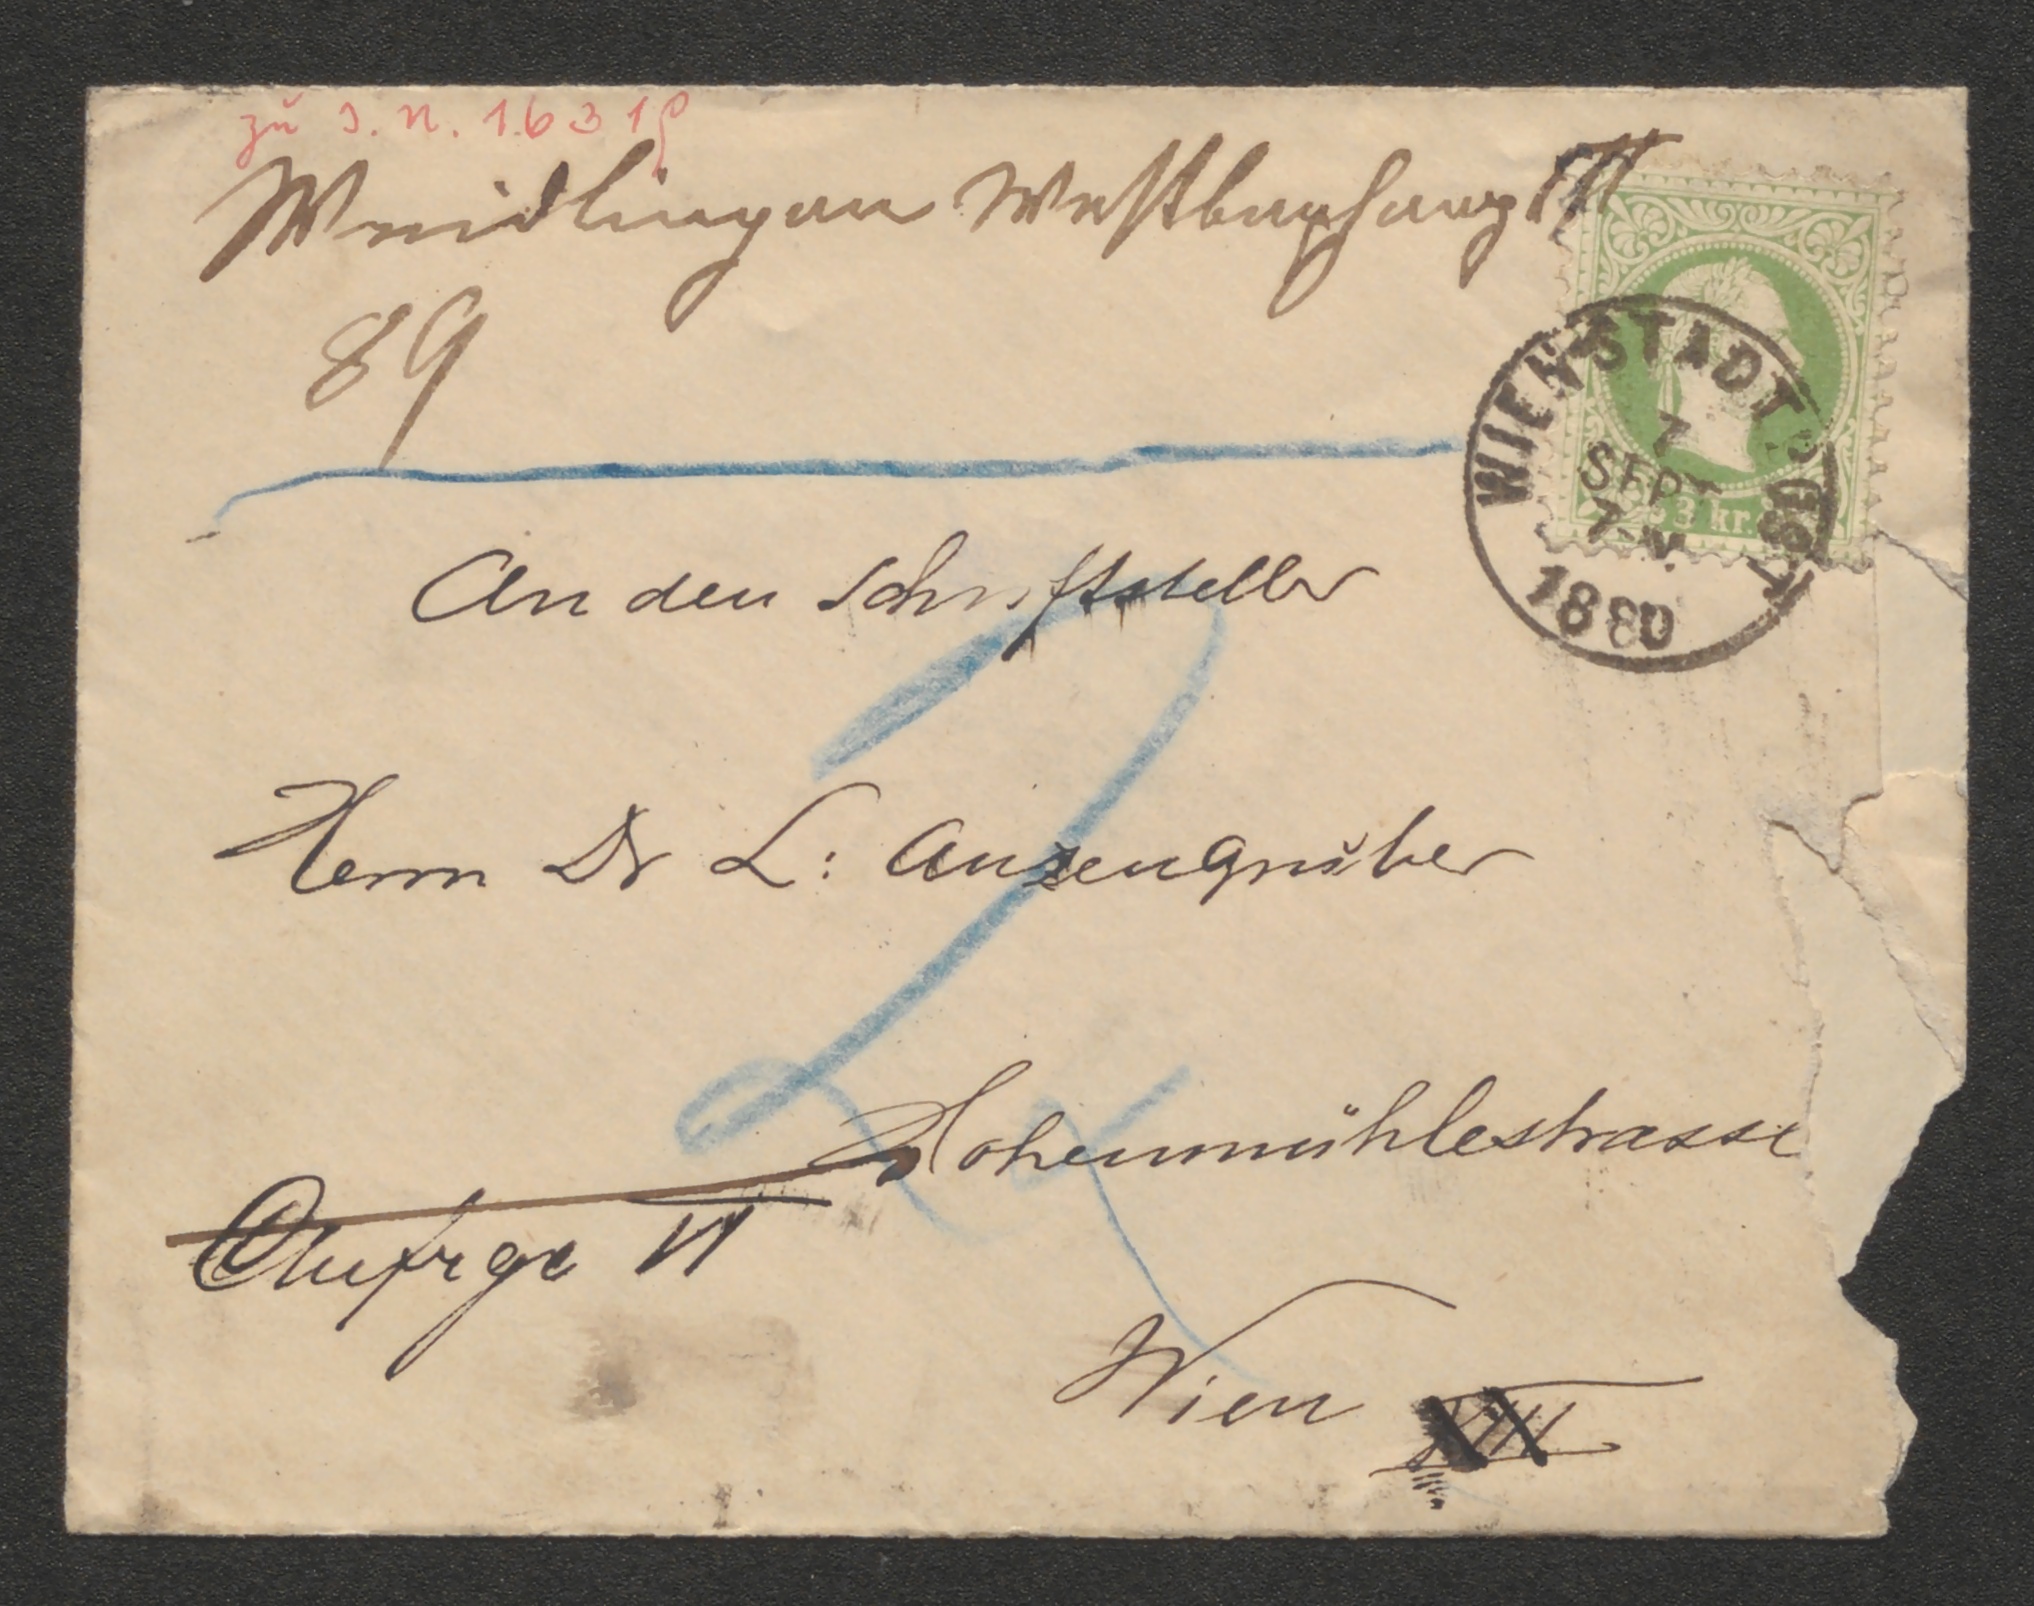 zu I. N. 16319
Weidlingau Westbahnhang
89
WIEN STADT POST
7
SEPT
7 V.
1880
3 kr.
An den Schriftsteller
Herrn Dr L: Anzengruber
Hohenmühlestrasse
Aufrge VI
Wien
2